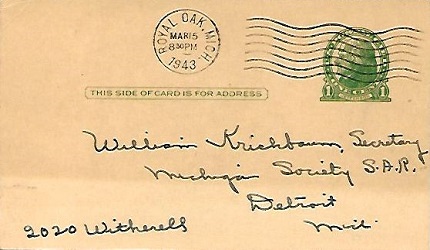 ROYAL OAK, MICH.
MAR 15
8 30 PM
1943
1 1
THIS SIDE OF CARD IS FOR ADDRESS
William Krichbaum, Secretary
Michigan Society S.A.R.
Detroit
Mich.
2020 Witherell